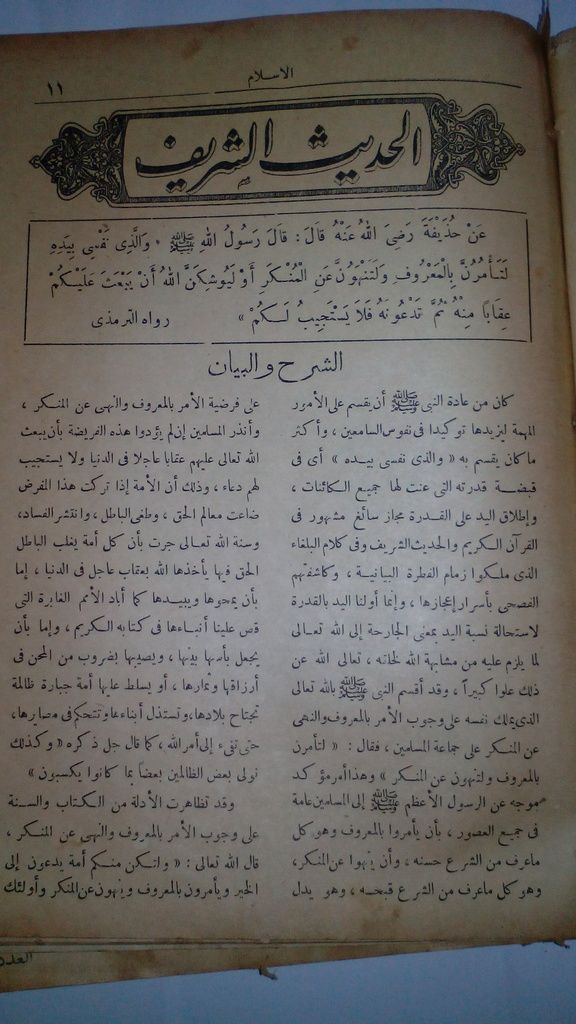 الاسلام
١١
الحديث الشريف
عَنْ حُذَيْفَةَ رَضِىَ اللهُ عَنْهُ قَالَ: قَالَ رَسُولُ اللهِ ﷺ «وَالَّذِى نَفْسِى بِيَدِهِ
لَتَأْمُرُنَّ بِالْمَعْرُوفِ وَلَتَنْهَوُنَّ عَنِ الْمُنْكَرِ أَوْ لَيُوشِكَنَّ اللهُ أَنْ يَبْعَثَ عَلَيْكُمْ
عِقَابًا مِنْهُ ثُمَّ تَدْعُونَهُ فَلَا يَسْتَجِيبُ لَكُمْ» رواه الترمذى
الشرح والبيان
كان من عادة النبى ﷺ أن يقسم على الأمور
المهمة ليزيدها توكيدا فى نفوس السامعين، وأكثر
ما كان يقسم به «والذى نفسى بيده» أى فى
قبضة قدرته التى عنت لها جميع الكائنات،
وإطلاق اليد على القدرة مجاز سائغ مشهور فى
القرآن الكريم والحديث الشريف وفى كلام البلغاء
الذى ملكوا زمام الفطرة البيانية، وكاشفتهم
الفصحى بأسرار إعجازها، وإنما أولنا اليد بالقدرة
لاستحالة نسبة اليد بمعنى الجارحة إلى الله تعالى
لما يلزم عليه من مشابهة الله لخلقه، تعالى الله عن
ذلك علوا كبيراً، وقد أقسم النبى ﷺ بالله تعالى
الذى يملك نفسه على وجوب الأمر بالمعروف والنهى
عن المنكر على جماعة المسلمين، فقال: «لتأمرن
بالمعروف ولتنهون عن المنكر» وهذا أمر مؤكد
موجه عن الرسول الأعظم ﷺ إلى المسلمين عامة
فى جميع العصور، بأن يأمروا بالمعروف وهو كل
ماعرف من الشرع حسنه، وأن ينهوا عن المنكر،
وهو كل ماعرف من الشرع قبحه، وهو يدل
على فرضية الأمر بالمعروف والنهى عن المنكر،
وأنذر المسلمين إن لم يؤدوا هذه الفريضة بأن يبعث
الله تعالى عليهم عقابا عاجلا فى الدنيا ولا يستجيب
لهم دعاء، وذلك أن الأمة إذا تركت هذا الفرض
ضاعت معالم الحق، وطغى الباطل، وانتشر الفساد،
وسنة الله تعالى جرت بأن كل أمة يغلب الباطل
الحق فيها يأخذها الله بعقاب عاجل فى الدنيا، إما
بأن يمحوها ويبيدها كما أباد الأمم الغابرة التى
قص علينا أنباءها فى كتابه الكريم، وإما بأن
يجعل بأسها بينها، ويصيبها بضروب من المحن فى
أرزاقها وثمارها، أو يسلط عليها أمة جبارة ظالمة
تجتاح بلادها، وتستذل أبناءها وتتحكم فى مصايرها،
حتى تفىء إلى أمر الله، كما قال جل ذكره «وكذلك
نولى بعض الظالمين بعضا بما كانوا يكسبون»
وقد تظاهرت الأدلة من الكتاب والسنة
على وجوب الأمر بالمعروف والنهى عن المنكر،
قال الله تعالى: «ولتكن منكم أمة يدعون إلى
الخير ويأمرون بالمعروف وينهون عن المنكر وأولئك
العدد